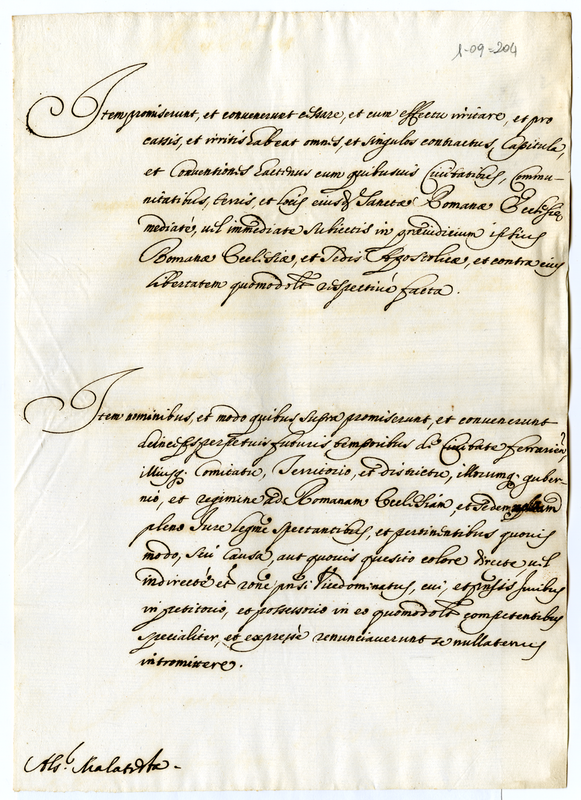 1-09-204
Item promiserunt, et convenerunt cassare, et cum effectu irritare, et pro
cassis, et irritis habeat omnes, et singulos contractus, Capitula,
et Conventiones hactenus cum quibusuis Ciuitatibus, Commu-
nitatibus, terris, et locis eiusd. Sanctæ Romanæ Ecclesiæ
mediatè, uel immediate subiectis in præiudicium istius
Romanæ Ecclesiæ, et Sedis Apostolicæ, et contra eius
libertatem quomodolt. respectiuè facta.
Item nominibus, et modo quibus supra promiserunt, et convenerunt
deinceps perpetuis futuris temporibus de Ciuitate Ferrarien,
Comitatu, Territorio, et districtu, illorumq. guber-
nio, et regimine ad Romanam Ecclesiam et Sedem
pleno Iure spectantibus, et pertinentibus quouis
modo, seu Causa, aut quouis quesito colore directè, uel
indirectè et rone Vicedominatus, cui, et Iuribus
in petitorio, et possessorio in eo quomodolt. competentibus
specialiter, et expressè renunciauerunt se nullatenus
intromittere.
Malatesta -